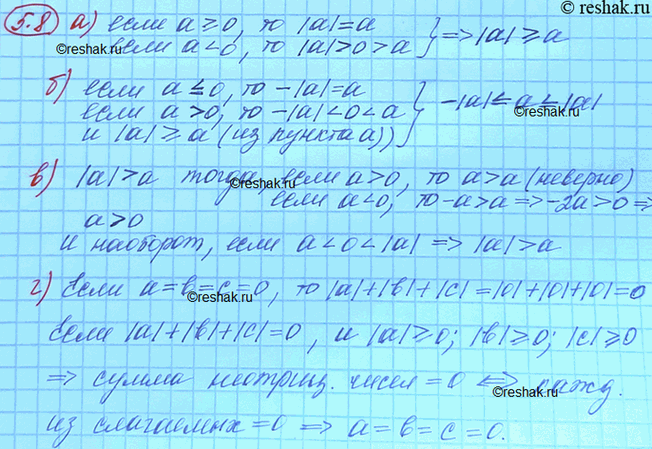 © reshak.ru
5.8 а) если a ≥ 0, то |a| = a
если a < 0, то |a| > 0 > a } => |a| ≥ a
б) если a ≤ 0, то -|a| = a
если a > 0, то -|a| < 0 < a } -|a| ≤ a ≤ |a|
и |a| ≥ a (из пункта а))
в) |a| > a тогда, если a > 0, то a > a (неверно)
если a < 0, то -a > a => -2a > 0 =>
a > 0
и наоборот, если a < 0 < |a| => |a| > a
г) Если a = b = c = 0, то |a| + |b| + |c| = |0| + |0| + |0| = 0
Если |a| + |b| + |c| = 0, и |a| ≥ 0; |b| ≥ 0; |c| ≥ 0
=> сумма неотриц. чисел = 0 <=> кажд.
из слагаемых = 0 => a = b = c = 0.